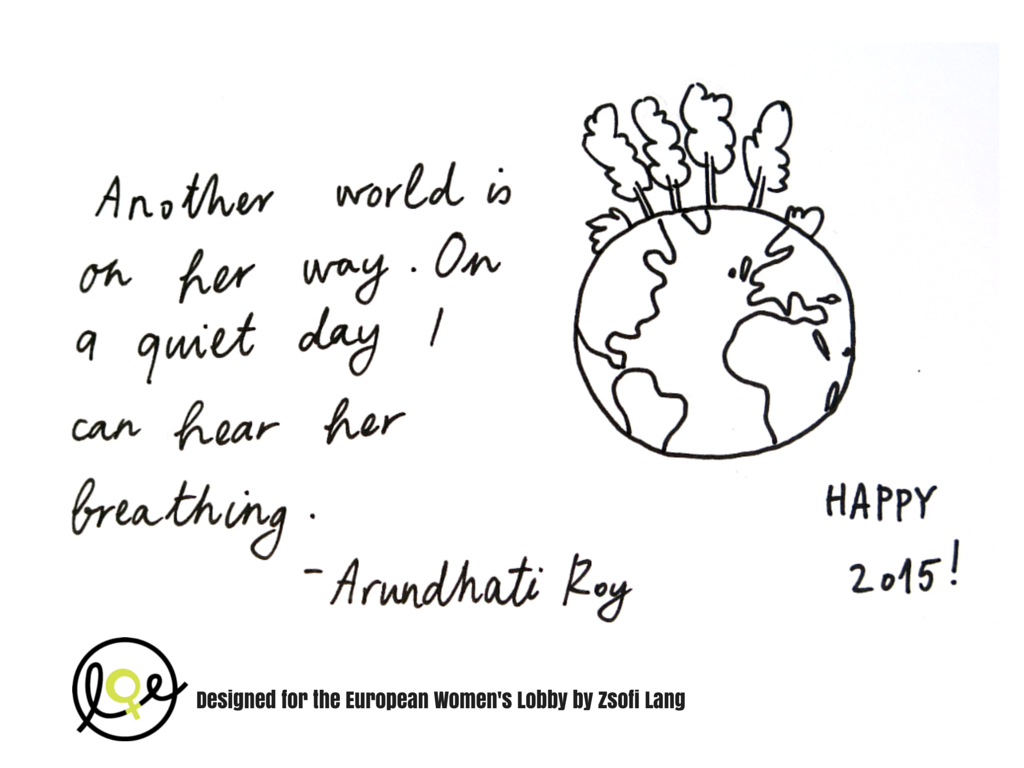 Another world is
on her way. On
a quiet day I
can hear her
breathing.
- Arundhati Roy
HAPPY
2015!
loe
Designed for the European Women's Lobby by Zsofi Lang